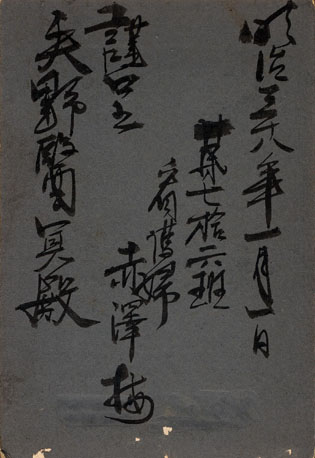 明治三十八年一月一日
第七拾六班
看護婦
赤澤梅
謹呈
天野醫員殿